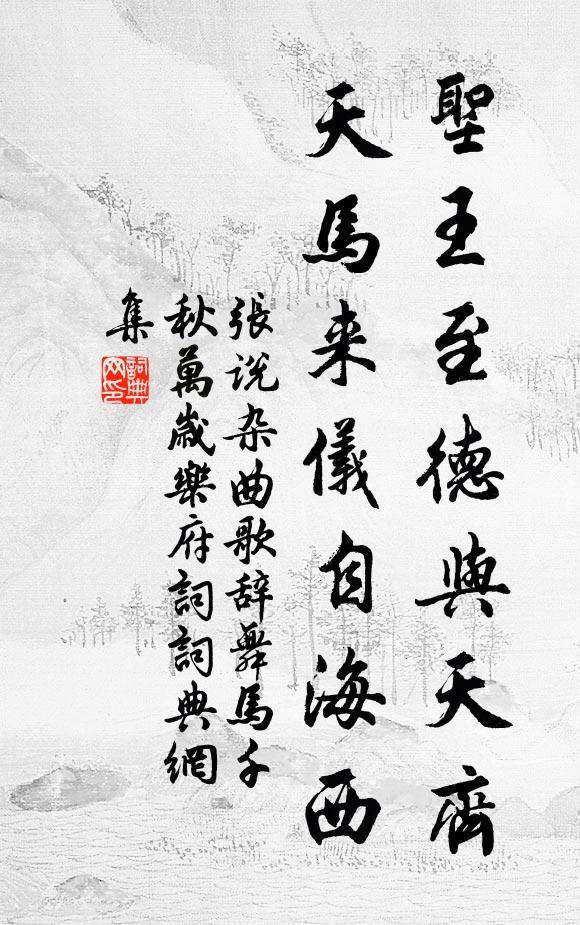 聖王至德與天齊
天馬来儀自海西
張说杂曲歌辞舞馬千
秋萬歲樂府詞詞典網
集
詞典
网印